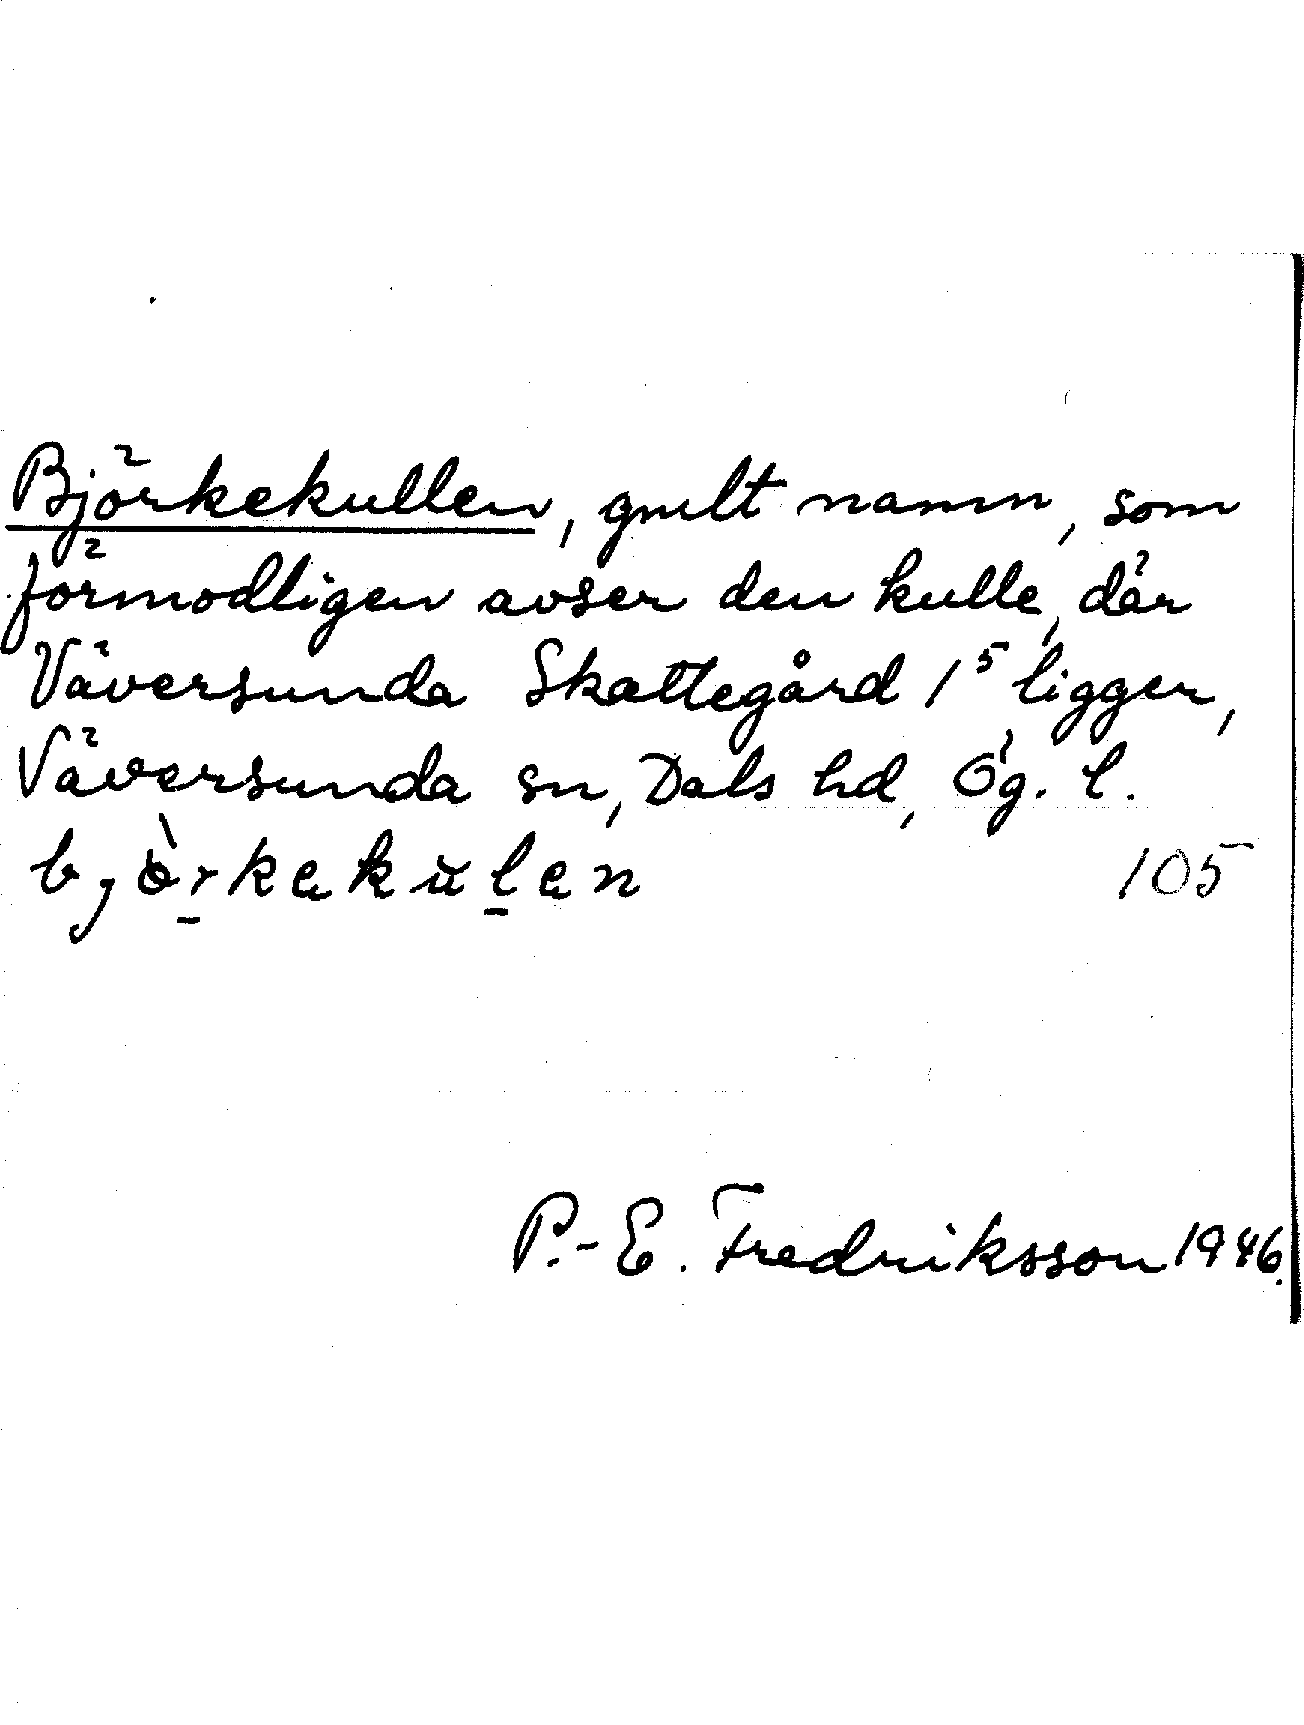 Björkekullen, gmlt namn, som
förmodligen avser den kulle, där
Väversunda Skattegård 1⁵ ligger,
Väversunda sn, Dals hd, Ög. l.
björkekulen 105
P.-E. Fredriksson 1946.